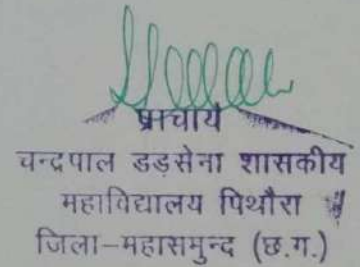 प्राचार्य
चन्द्रपाल डड़सेना शासकीय
महाविद्यालय पिथौरा
जिला-महासमुन्द (छ.ग.)